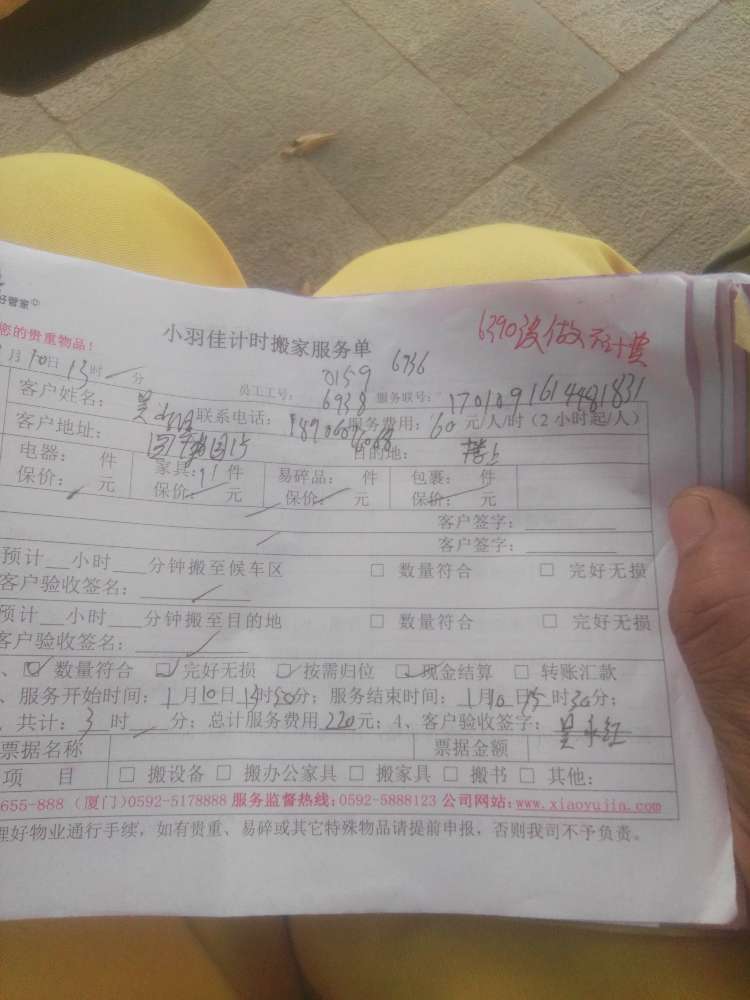 好管家
您的贵重物品！
小羽佳计时搬家服务单
6390没做不计费
月10日13时 分
员工工号：0159 6736
6938 服务联号：1701091614481831
客户姓名：吴 联系电话： 服务费用：60元/人/时（2小时起/人）
客户地址： 目的地：楼上
电器： 件 家具： 件 易碎品： 件 包裹： 件
保价： 元 保价： 元 保价： 元 保价： 元
客户签字：
客户签字：
预计__小时___分钟搬至候车区 □ 数量符合 □ 完好无损
客户验收签名：
预计__小时___分钟搬至目的地 □ 数量符合 □ 完好无损
客户验收签名：
、☑数量符合 ☑完好无损 ☑按需归位 ☑现金结算 □ 转账汇款
、服务开始时间：1月10日13时50分；服务结束时间：1月10日15时30分；
、共计：3时 分；总计服务费用220元；4、客户验收签字：吴永红
票据名称 票据金额
项 目 □ 搬设备 □ 搬办公家具 □ 搬家具 □ 搬书 □ 其他：
655-888（厦门）0592-5178888 服务监督热线：0592-5888123 公司网站：www.xiaoyujia.com
理好物业通行手续，如有贵重、易碎或其它特殊物品请提前申报，否则我司不予负责。